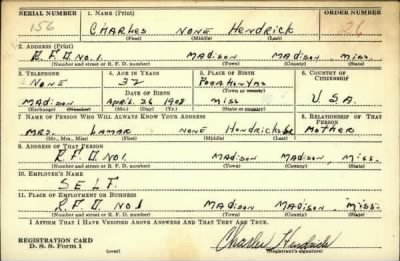 SERIAL NUMBER 1. NAME (Print) ORDER NUMBER
156 CHARLES NONE Hendrick 26
(First) (Middle) (Last)
2. ADDRESS (Print)
R.F.D. No. 1. MADISON MADISON, MISS.
(Number and street or R. F. D. number) (Town) (County) (State)
3. TELEPHONE 4. AGE IN YEARS 5. PLACE OF BIRTH 6. COUNTRY OF CITIZENSHIP
NONE 32
DATE OF BIRTH
MADISON APRIL 26 1908 MISS U.S.A.
(Exchange) (Number) (Mo.) (Day) (Yr.) (State or country)
7. NAME OF PERSON WHO WILL ALWAYS KNOW YOUR ADDRESS 8. RELATIONSHIP OF THAT PERSON
MRS. LAMAR NONE MOTHER
(Mr., Mrs., Miss) (First) (Middle) (Last)
9. ADDRESS OF THAT PERSON
R.F.D. No 1. MADISON MADISON, MISS.
(Number and street or R. F. D. number) (Town) (County) (State)
10. EMPLOYER'S NAME
SELF.
11. PLACE OF EMPLOYMENT OR BUSINESS
R.F.D No 1 MADISON MADISON, MISS.
(Number and street or R. F. D. number) (Town) (County) (State)
I AFFIRM THAT I HAVE VERIFIED ABOVE ANSWERS AND THAT THEY ARE TRUE.
REGISTRATION CARD
D. S. S. Form 1 (over) Charles Hendrick
(Registrant's signature)